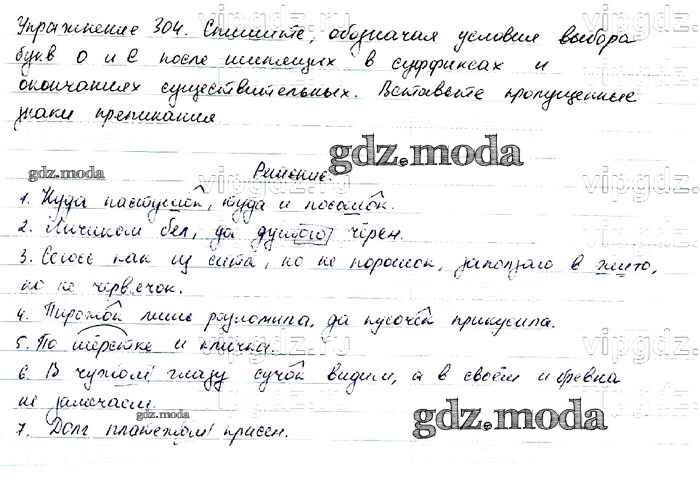 Упражнение 304. Спишите, обозначая условия выбора
букв О и Ё после шипящих в суффиксах и
окончаниях существительных. Вставьте пропущенные
знаки препинания
gdz.moda
gdz.moda
Решение
1. Куда пастушок, туда и посошок.
2. Личиком бел, да душою чёрен.
3. Ссюсе как из сита, но не порошок, заползло в жито,
но не червячок.
4. Пирожок лишь разломила, да кусочек прикусила.
5. По шёрстке и кличка.
6. В чужом глазу сучок видим, а в своём и бревна
не замечаем.
gdz.moda
gdz.moda
7. Долг платежом красен.
vipgdz.ru